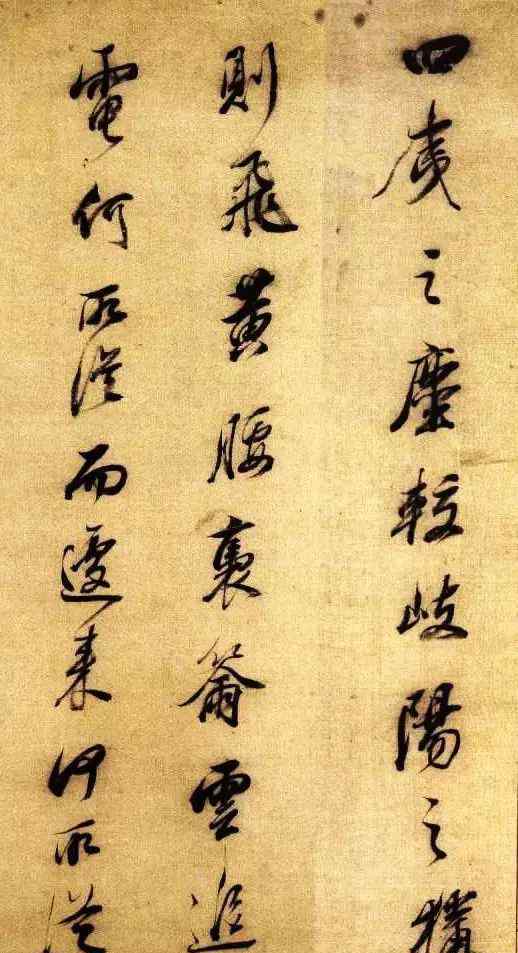 四夷之塵較岐陽之獵
則飛黃腰褭籋雲追
電何所從而遽來何所從